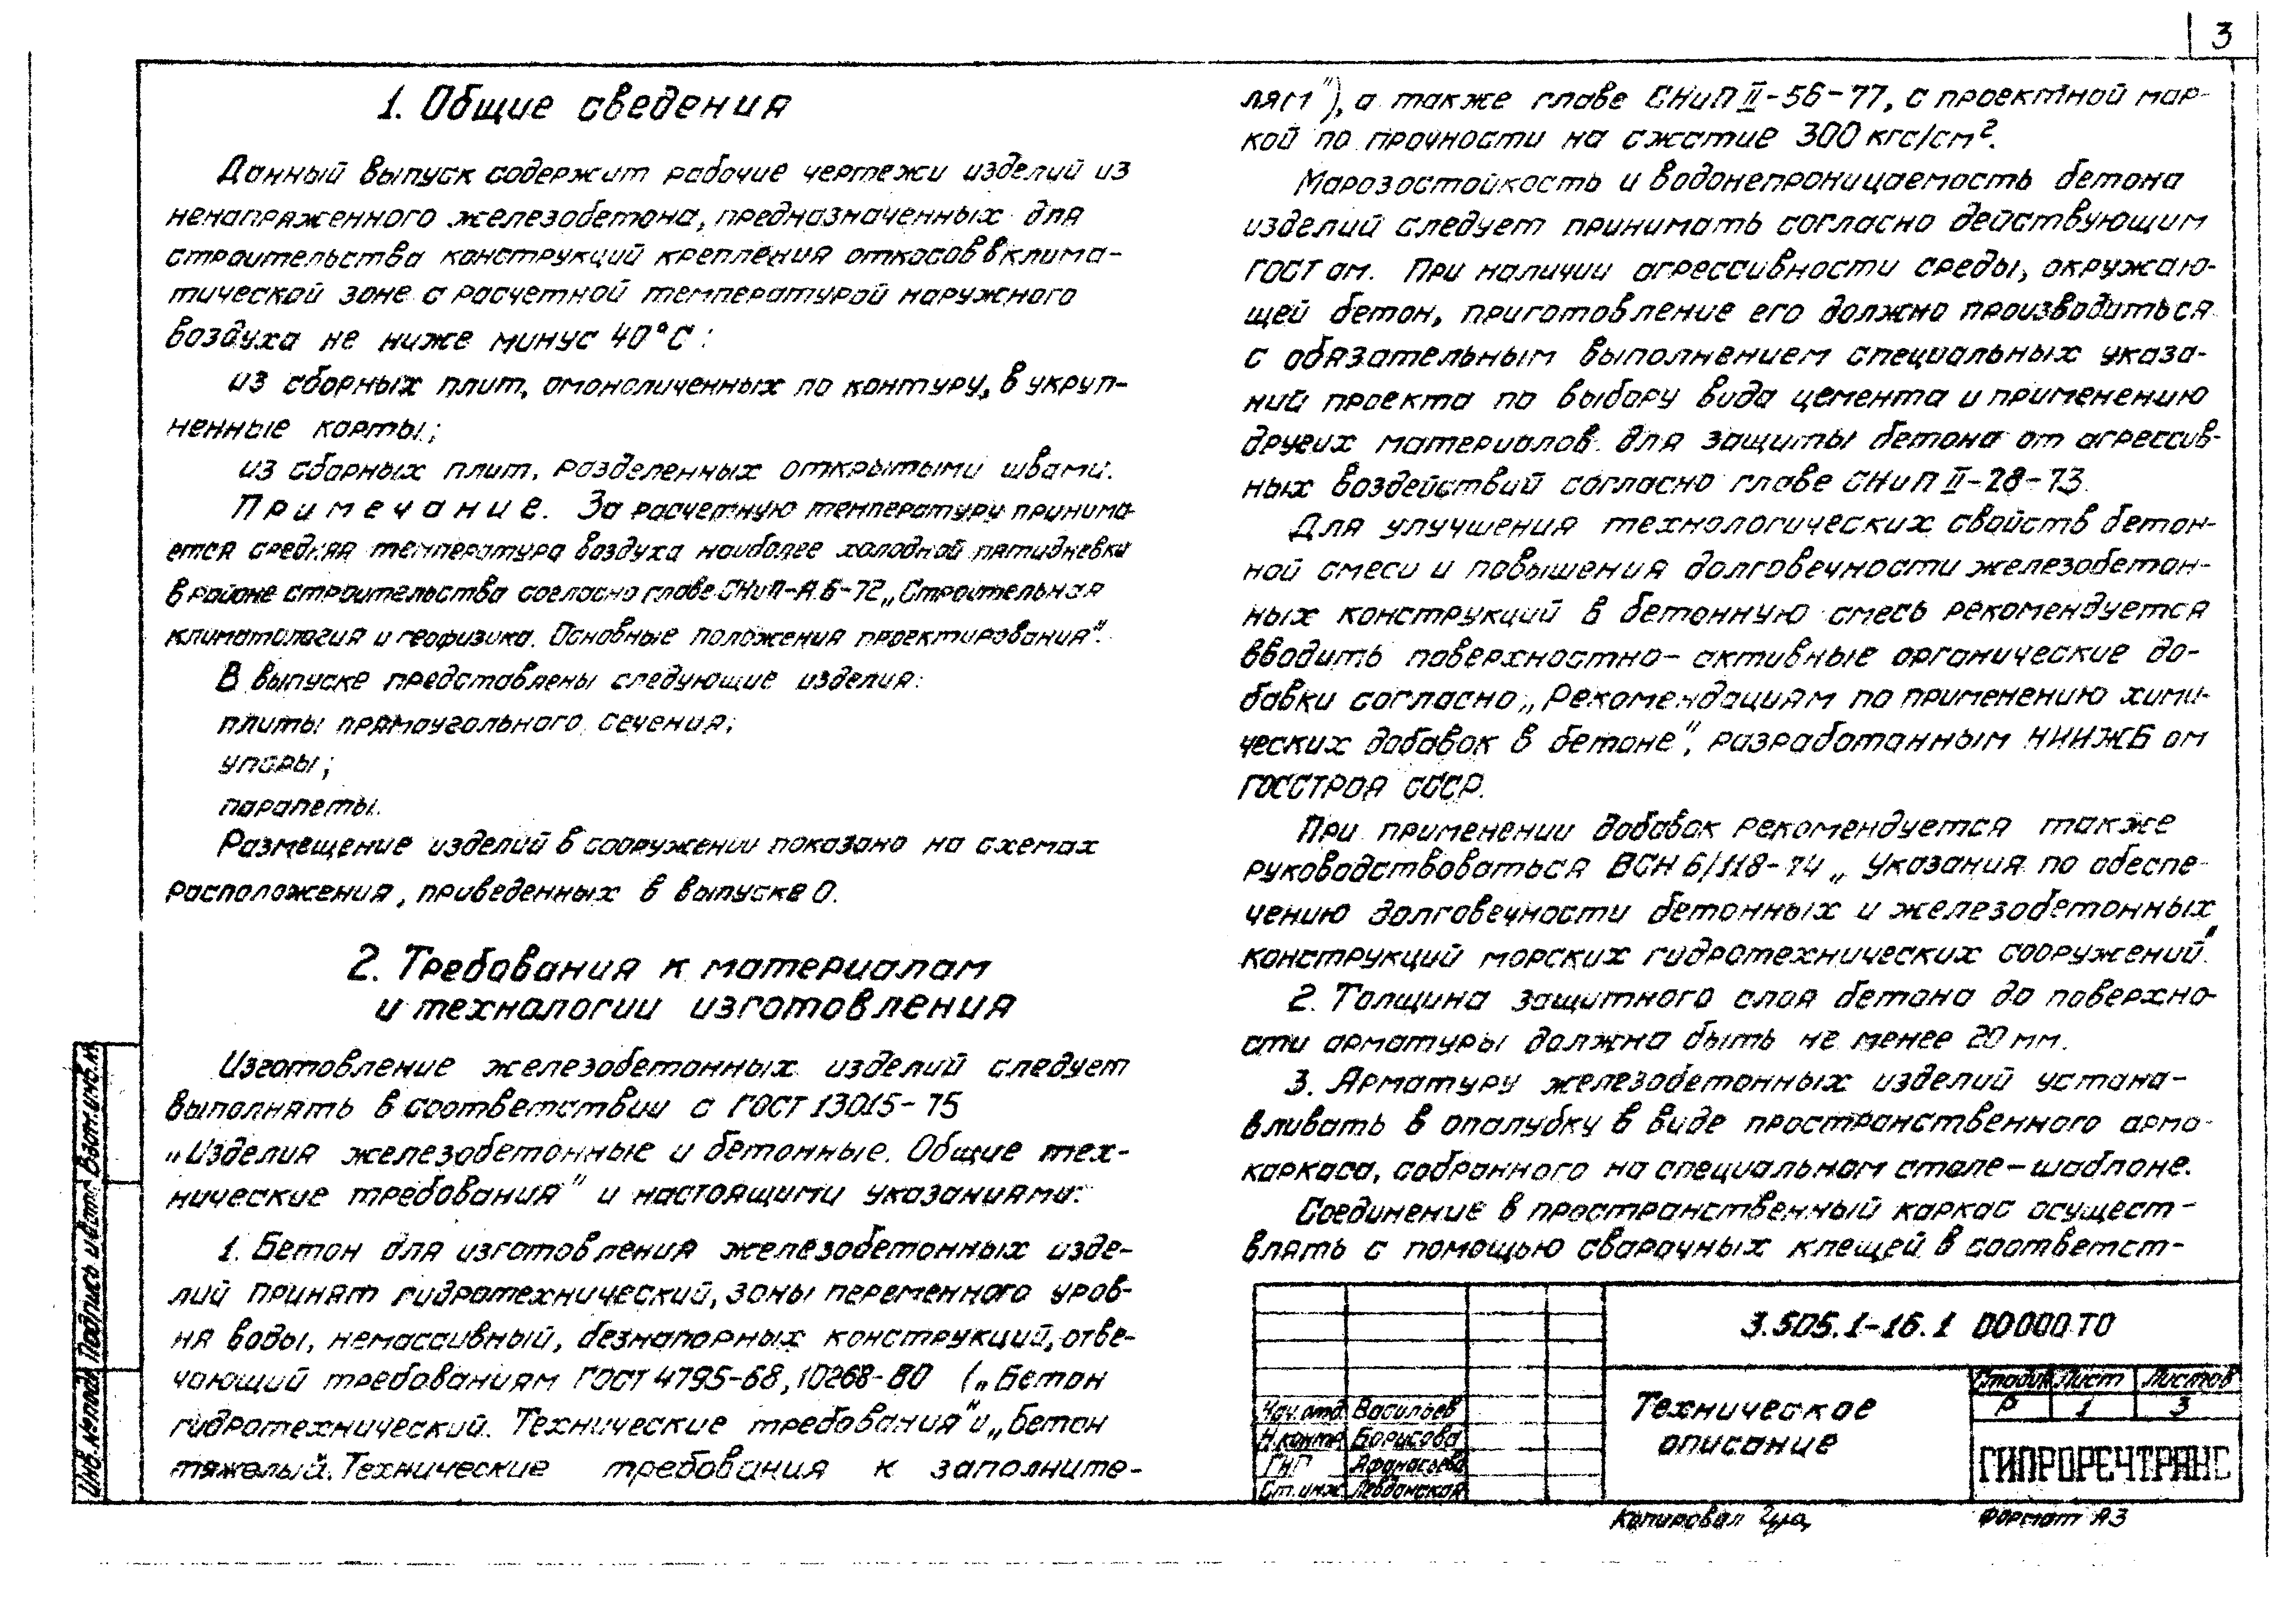 3
1. Общие сведения
Данный выпуск содержит рабочие чертежи изделий из
ненапряженного железобетона, предназначенных для
строительства конструкций крепления откосов в клима-
тической зоне с расчетной температурой наружного
воздуха не ниже минус 40°С:
из сборных плит, омоноличенных по контуру, в укруп-
ненные карты;
из сборных плит, разделенных открытыми швами.
Примечание. За расчетную температуру принима-
ется средняя температура воздуха наиболее холодной пятидневки
в районе строительства согласно главе СНиП-А.6-72 „Строительная
климатология и геофизика. Основные положения проектирования".
В выпуске представлены следующие изделия:
плиты прямоугольного сечения;
упоры;
парапеты.
Размещение изделий в сооружении показано на схемах
расположения, приведенных в выпуске 0.
2. Требования к материалам
и технологии изготовления
Изготовление железобетонных изделий следует
выполнять в соответствии с ГОСТ 13015-75
„Изделия железобетонные и бетонные. Общие тех-
нические требования" и настоящими указаниями:
1. Бетон для изготовления железобетонных изде-
лий принят гидротехнический, зоны переменного уров-
ня воды, немассивный, безнапорных конструкций, отве-
чающий требованиям ГОСТ 4795-68, 10268-80 („Бетон
гидротехнический. Технические требования" и „Бетон
тяжелый. Технические требования к заполните-
лям"), а также главе СНиП II-56-77, с проектной мар-
кой по прочности на сжатие 300 кгс/см².
Морозостойкость и водонепроницаемость бетона
изделий следует принимать согласно действующим
ГОСТам. При наличии агрессивности среды, окружаю-
щей бетон, приготовление его должно производиться
с обязательным выполнением специальных указа-
ний проекта по выбору вида цемента и применению
других материалов для защиты бетона от агрессив-
ных воздействий согласно главе СНиП II-28-73.
Для улучшения технологических свойств бетон-
ной смеси и повышения долговечности железобетон-
ных конструкций в бетонную смесь рекомендуется
вводить поверхностно-активные органические до-
бавки согласно „Рекомендациям по применению хими-
ческих добавок в бетоне", разработанным НИИЖБ ом
Госстроя СССР.
При применении добавок рекомендуется также
руководствоваться ВСН 6/118-74 „Указания по обеспе-
чению долговечности бетонных и железобетонных
конструкций морских гидротехнических сооружений".
2. Толщина защитного слоя бетона до поверхно-
сти арматуры должна быть не менее 20 мм.
3. Арматуру железобетонных изделий устана-
вливать в опалубку в виде пространственного армо-
каркаса, собранного на специальном столе-шаблоне.
Соединение в пространственный каркас осущест-
влять с помощью сварочных клещей в соответст-
3.505.1-16.1 00000 ТО
Техническое
описание
Стадия Лист Листов
Р 1 3
ГИПРОРЕЧТРАНС
Нач.отд. Васильев
Н.контр. Борисова
ГИП Афанасьева
Ст.инж. Левданская
Копировал
Формат А3
Инв.№ подл. Подпись и дата Взам.инв.№